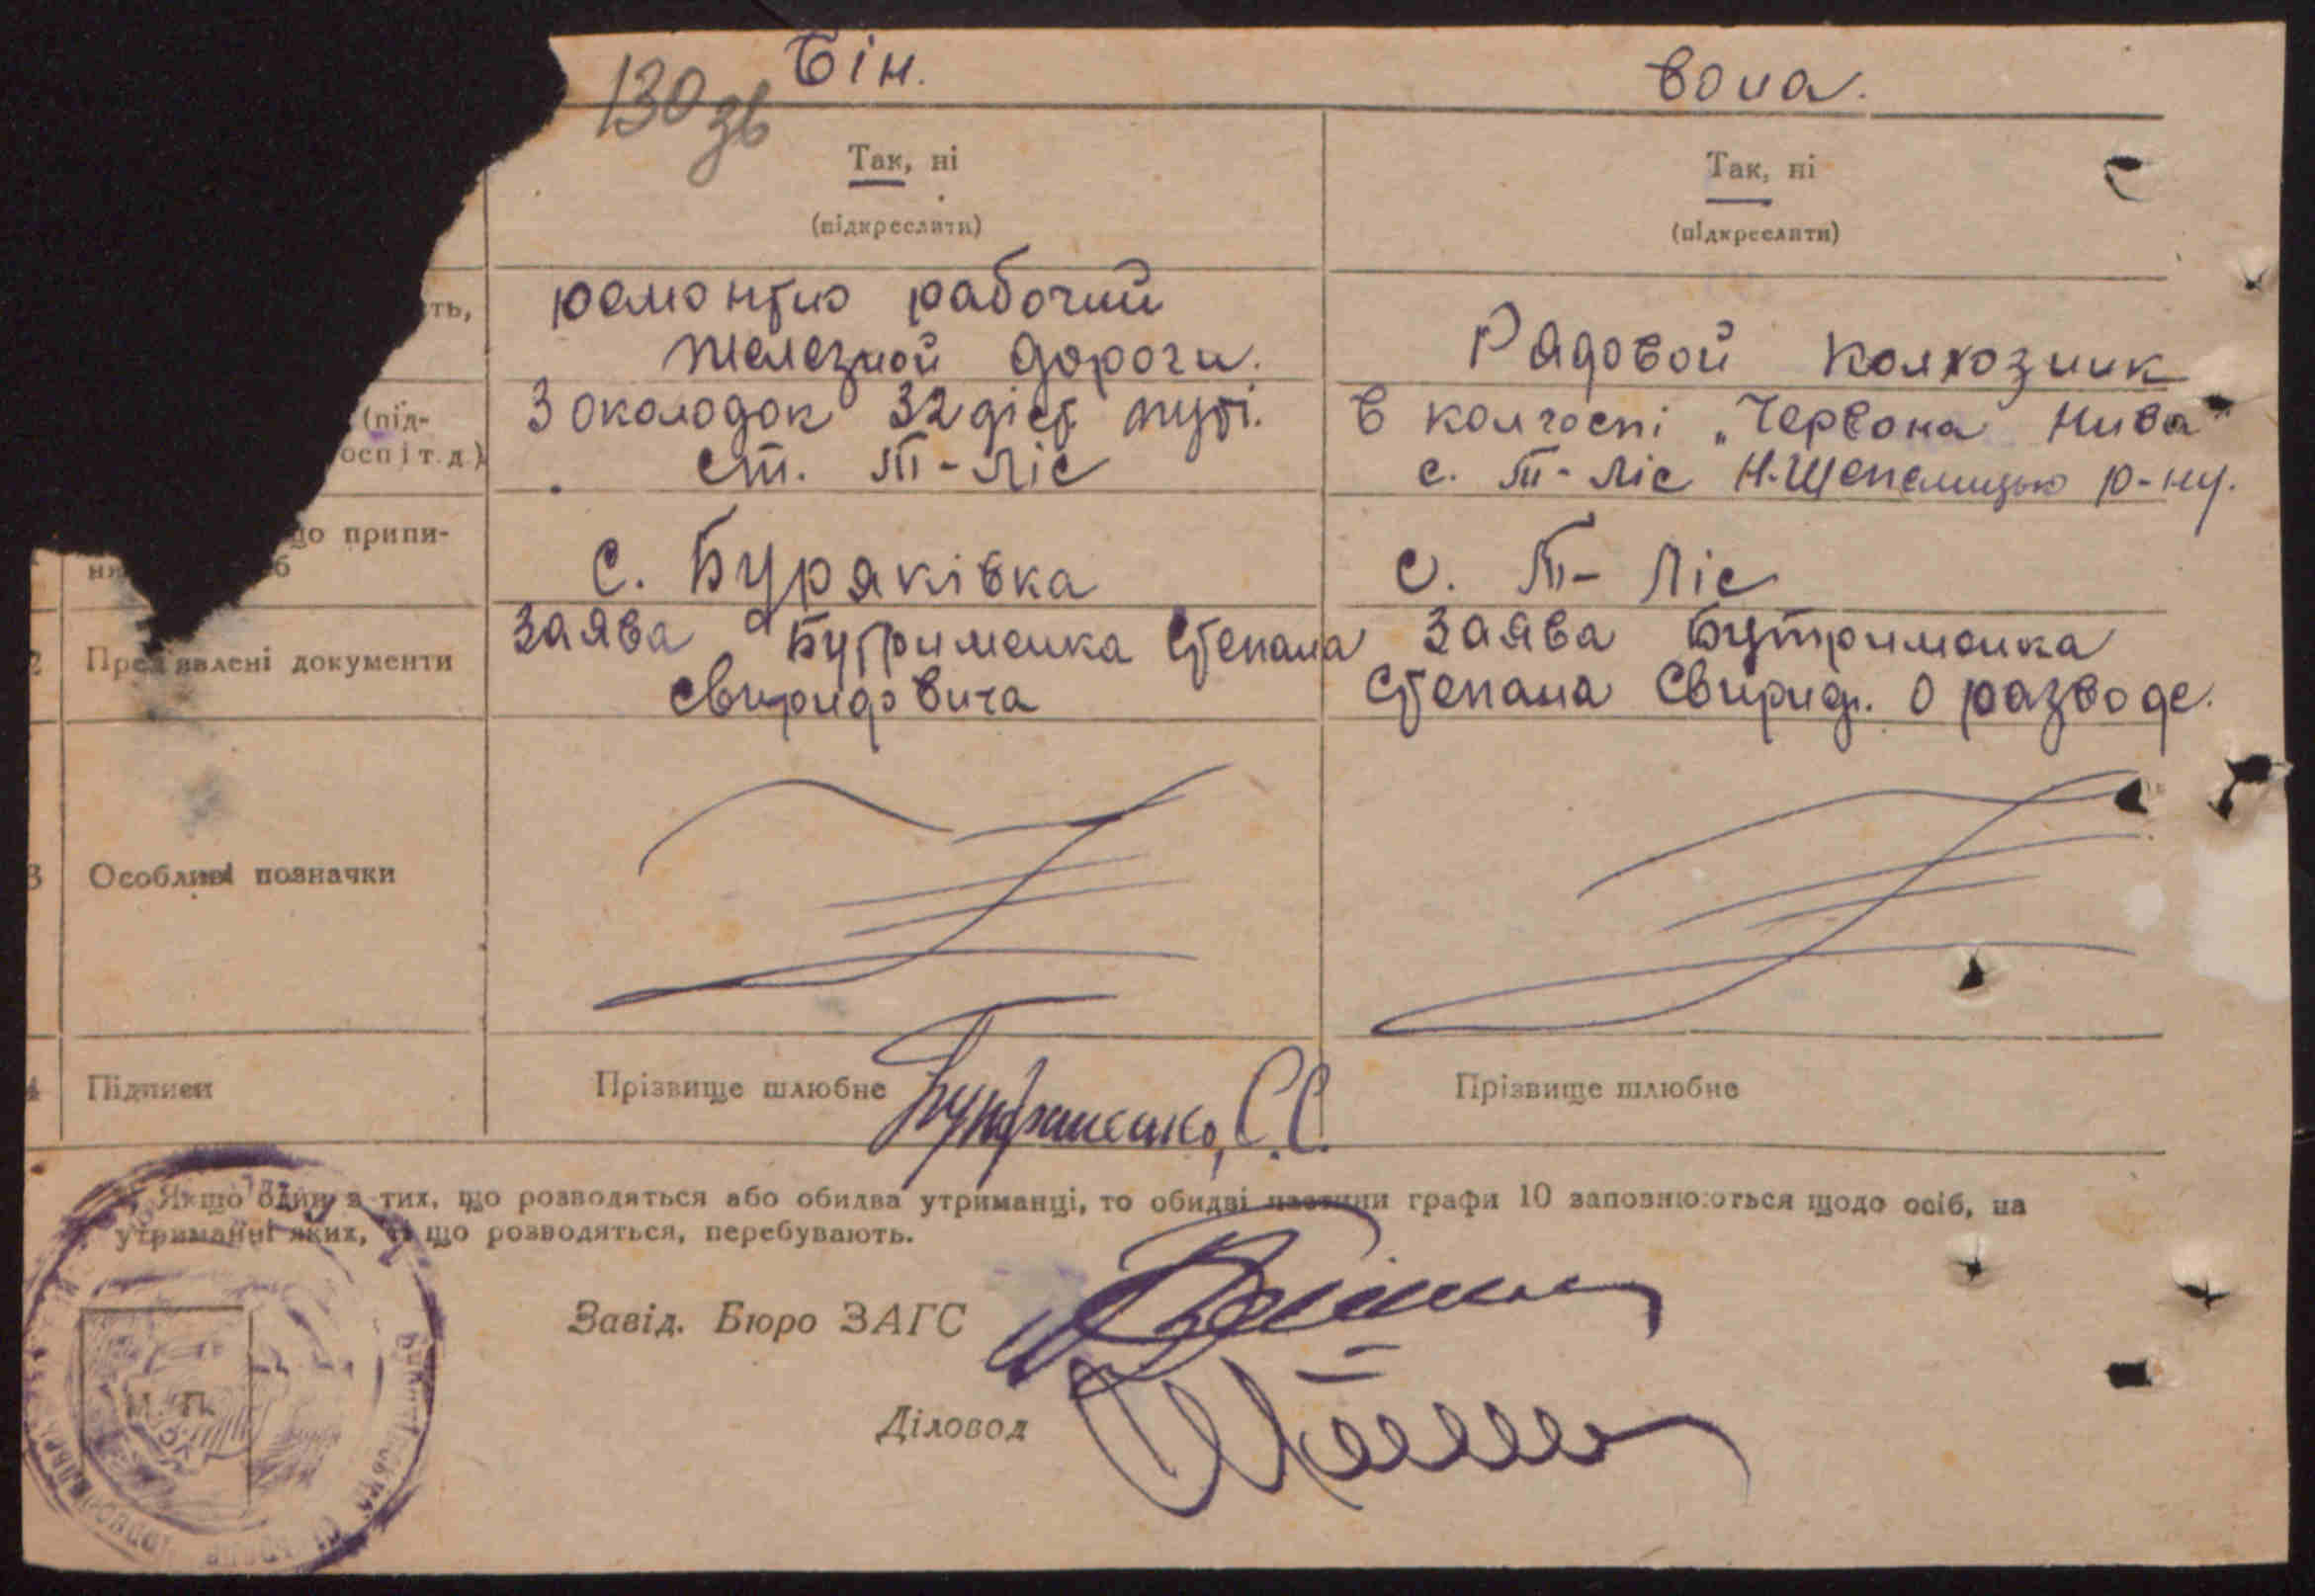 Він.
Вона.
130 зв
Так, ні
Так, ні
(підкреслити)
(підкреслити)
ть,
ремонтно рабочий
железной дороги.
Рядовой колхозник
(під-
осп і т. д.)
3 околодок 32 дист. путі.
ст. Т-Ліс
в колгоспі „Червона Нива"
с. Т-Ліс Н-Шепелицько р-ну.
що припи-
с. Буряківка
с. Т-Ліс
2 Пред'явлені документи
Заява Бутрименка Степана
Свиридовича
Заява Бутрименка
Степана Свирид. о разводе.
3 Особливі позначки
4 Підписи
Прізвище шлюбне Бутрименко, С.С.
Прізвище шлюбне
Якщо один з тих, що розводяться або обидва утриманці, то обидві частини графи 10 заповнюються щодо осіб, на
утриманні яких, ті що розводяться, перебувають.
Завід. Бюро ЗАГС
М. П.
Діловод